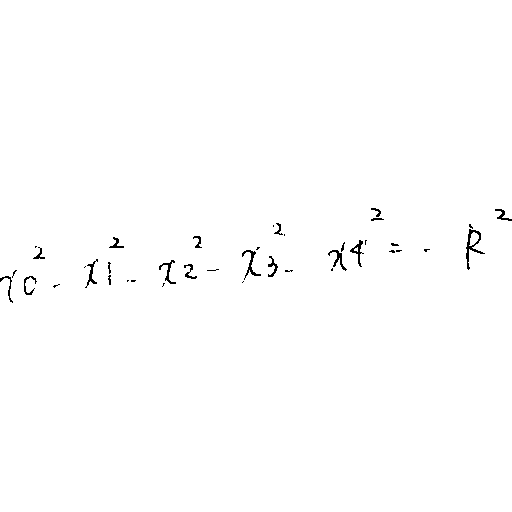 x_0^2 - x_1^2 - x_2^2 - x_3^2 - x_4^2 = - R^2